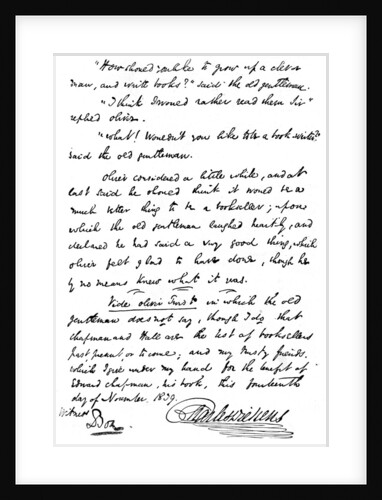 "How should you like to grow up a clever
man, and write books?" said the old gentleman.
"I think I would rather read them Sir"
replied oliver.
"What! Wouldn't you like to be a book-writer?"
said the old gentleman.
Oliver considered a little while, and at
last said he should think it would be a
much better thing to be a bookseller; upon
which the old gentleman laughed heartily, and
declared he had said a very good thing, which
oliver felt glad to have done, though he
by no means knew what it was.
Vide Oliver Twist in which the old
gentleman does not say, though I do, that
chapman and Hall are the best of booksellers
past, present, or to come; and my trusty friends.
which I give under my hand for the benefit of
Edward chapman, his book, this fourteenth
day of November. 1839.
Witness
Boz.
Charles Dickens